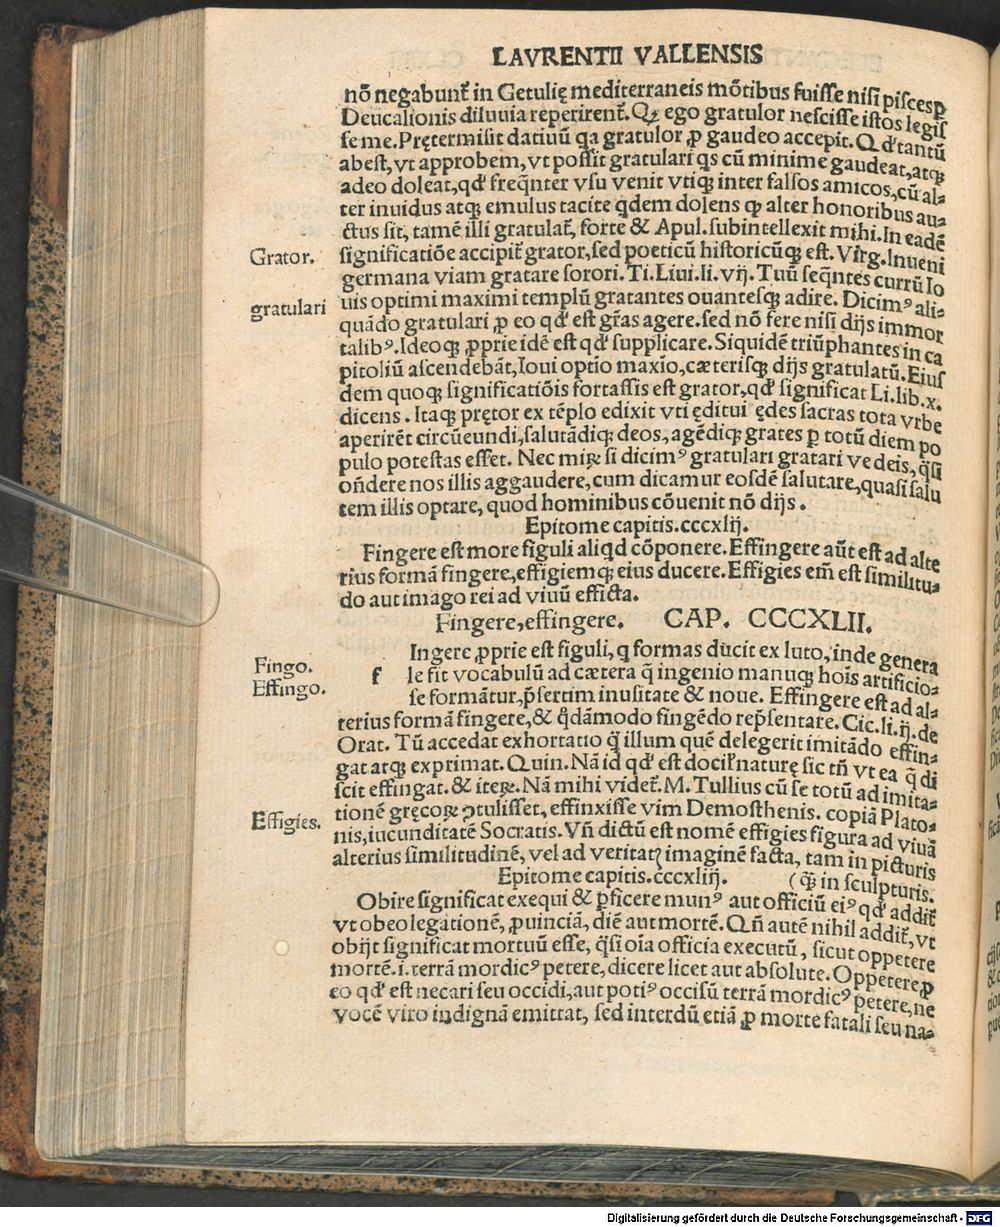 LAVRENTII VALLENSIS
nõ negabunt᷑ in Getulię mediterraneis mõtibus fuisse nisi pisces ꝑ
Deucalionis diluuia reperirent᷑. Qꝫ ego gratulor nescisse istos legis
se me. Prętermisit datiuũ qa gratulor ꝓ gaudeo accepit. Q d' tantũ
abest, vt approbem, vt possit gratulari qs cũ minime gaudeat, atqꝫ
adeo doleat, qd' freq̃nter vsu venit vtiqꝫ inter falsos amicos, cũ al⸗
ter inuidus atqꝫ emulus tacite qdem dolens ꝙ alter honoribus au⸗
ctus sit, tamẽ illi gratulat᷑, forte & Apul. subintellexit mihi. In eadẽ
Grator. significatiõe accipit᷑ grator, sed poeticũ historicũqꝫ est. Virg. Inueni
germana viam gratare sorori. Ti. Liui. li. vij. Tuũ seq̃ntes currũ Io
gratulari uis optimi maximi templũ gratantes ouantesqꝫ adire. Dicimꝰ ali⸗
quãdo gratulari ꝓ eo qd' est gr̃as agere. sed nõ fere nisi dijs immor
talibꝰ. Ideoqꝫ ꝓprie idẽ est qd' supplicare. Siquidẽ triũphantes in ca
pitoliũ ascendebãt, Ioui optio maxio, cæterisqꝫ dijs gratulatũ. Eius
dem quoqꝫ significatiõis fortassis est grator, qd' significat Li. lib. x.
dicens. Itaqꝫ prętor ex tẽplo edixit vti ęditui ędes sacras tota vrbe
aperirẽt circũeundi, salutãdiqꝫ deos, agẽdiqꝫ grates ꝑ totũ diem po
pulo potestas esset. Nec miꝝ si dicimꝰ gratulari gratari ve deis, q̃si
oñdere nos illis aggaudere, cum dicamur eosdẽ salutare, quasi salu
tem illis optare, quod hominibus cõuenit nõ dijs.
Epitome capitis. cccxlij.
Fingere est more figuli aliqd cõponere. Effingere aũt est ad alte
rius formã fingere, effigiemqꝫ eius ducere. Effigies em̃ est similitu⸗
do aut imago rei ad viuũ efficta.
Fingere, effingere. CAP. CCCXLII.
Fingo. f Ingere ꝓprie est figuli, q formas ducit ex luto, inde genera
Effingo. le fit vocabulũ ad cætera q̃ ingenio manuqꝫ hois artificio⸗
se formãtur, p̃sertim inusitate & noue. Effingere est ad al⸗
terius formã fingere, & q̃dãmodo fingẽdo rep̃sentare. Cic. li. ij. de
Orat. Tũ accedat exhortatio q̃ illum quẽ delegerit imitãdo effin⸗
gat atqꝫ exprimat. Quin. Nã id qd' est docil᷑ naturę sic tñ vt ea q̃ di
scit effingat. & iteꝝ. Nã mihi videt᷑. M. Tullius cũ se totũ ad imita⸗
tionẽ gręcoꝝ ꝯtulisset, effinxisse vim Demosthenis. copiã Plato⸗
Effigies. nis, iucunditatẽ Socratis. Vñ dictũ est nomẽ effigies figura ad viuã
alterius similitudinẽ, vel ad veritatꝭ imaginẽ facta, tam in picturis
Epitome capitis. cccxliij. (q̃ in sculpturis.
Obire significat exequi & ꝑficere munꝰ aut officiũ eiꝰ qd' addit᷑
vt obeo legationẽ, ꝓuinciã, diẽ aut mortẽ. Qñ autẽ nihil addit᷑, vt
obijt significat mortuũ esse, q̃si oĩa officia executũ, sicut oppetere
mortẽ. i. terrã mordicꝰ petere, dicere licet aut absolute. Oppetere ꝓ
eo qd' est necari seu occidi, aut potiꝰ occisũ terrã mordicꝰ petere, ne
vocẽ viro indignã emittat, sed interdũ etiã ꝓ morte fatali seu na⸗
Digitalisierung gefördert durch die Deutsche Forschungsgemeinschaft - DFG